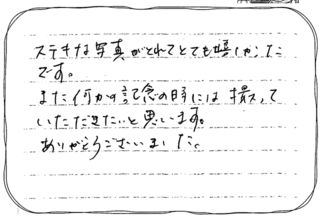 ステキな写真がとれてとても嬉しかった
です。
また何か記念の時には撮って
いただきたいと思います。
ありがとうございました。